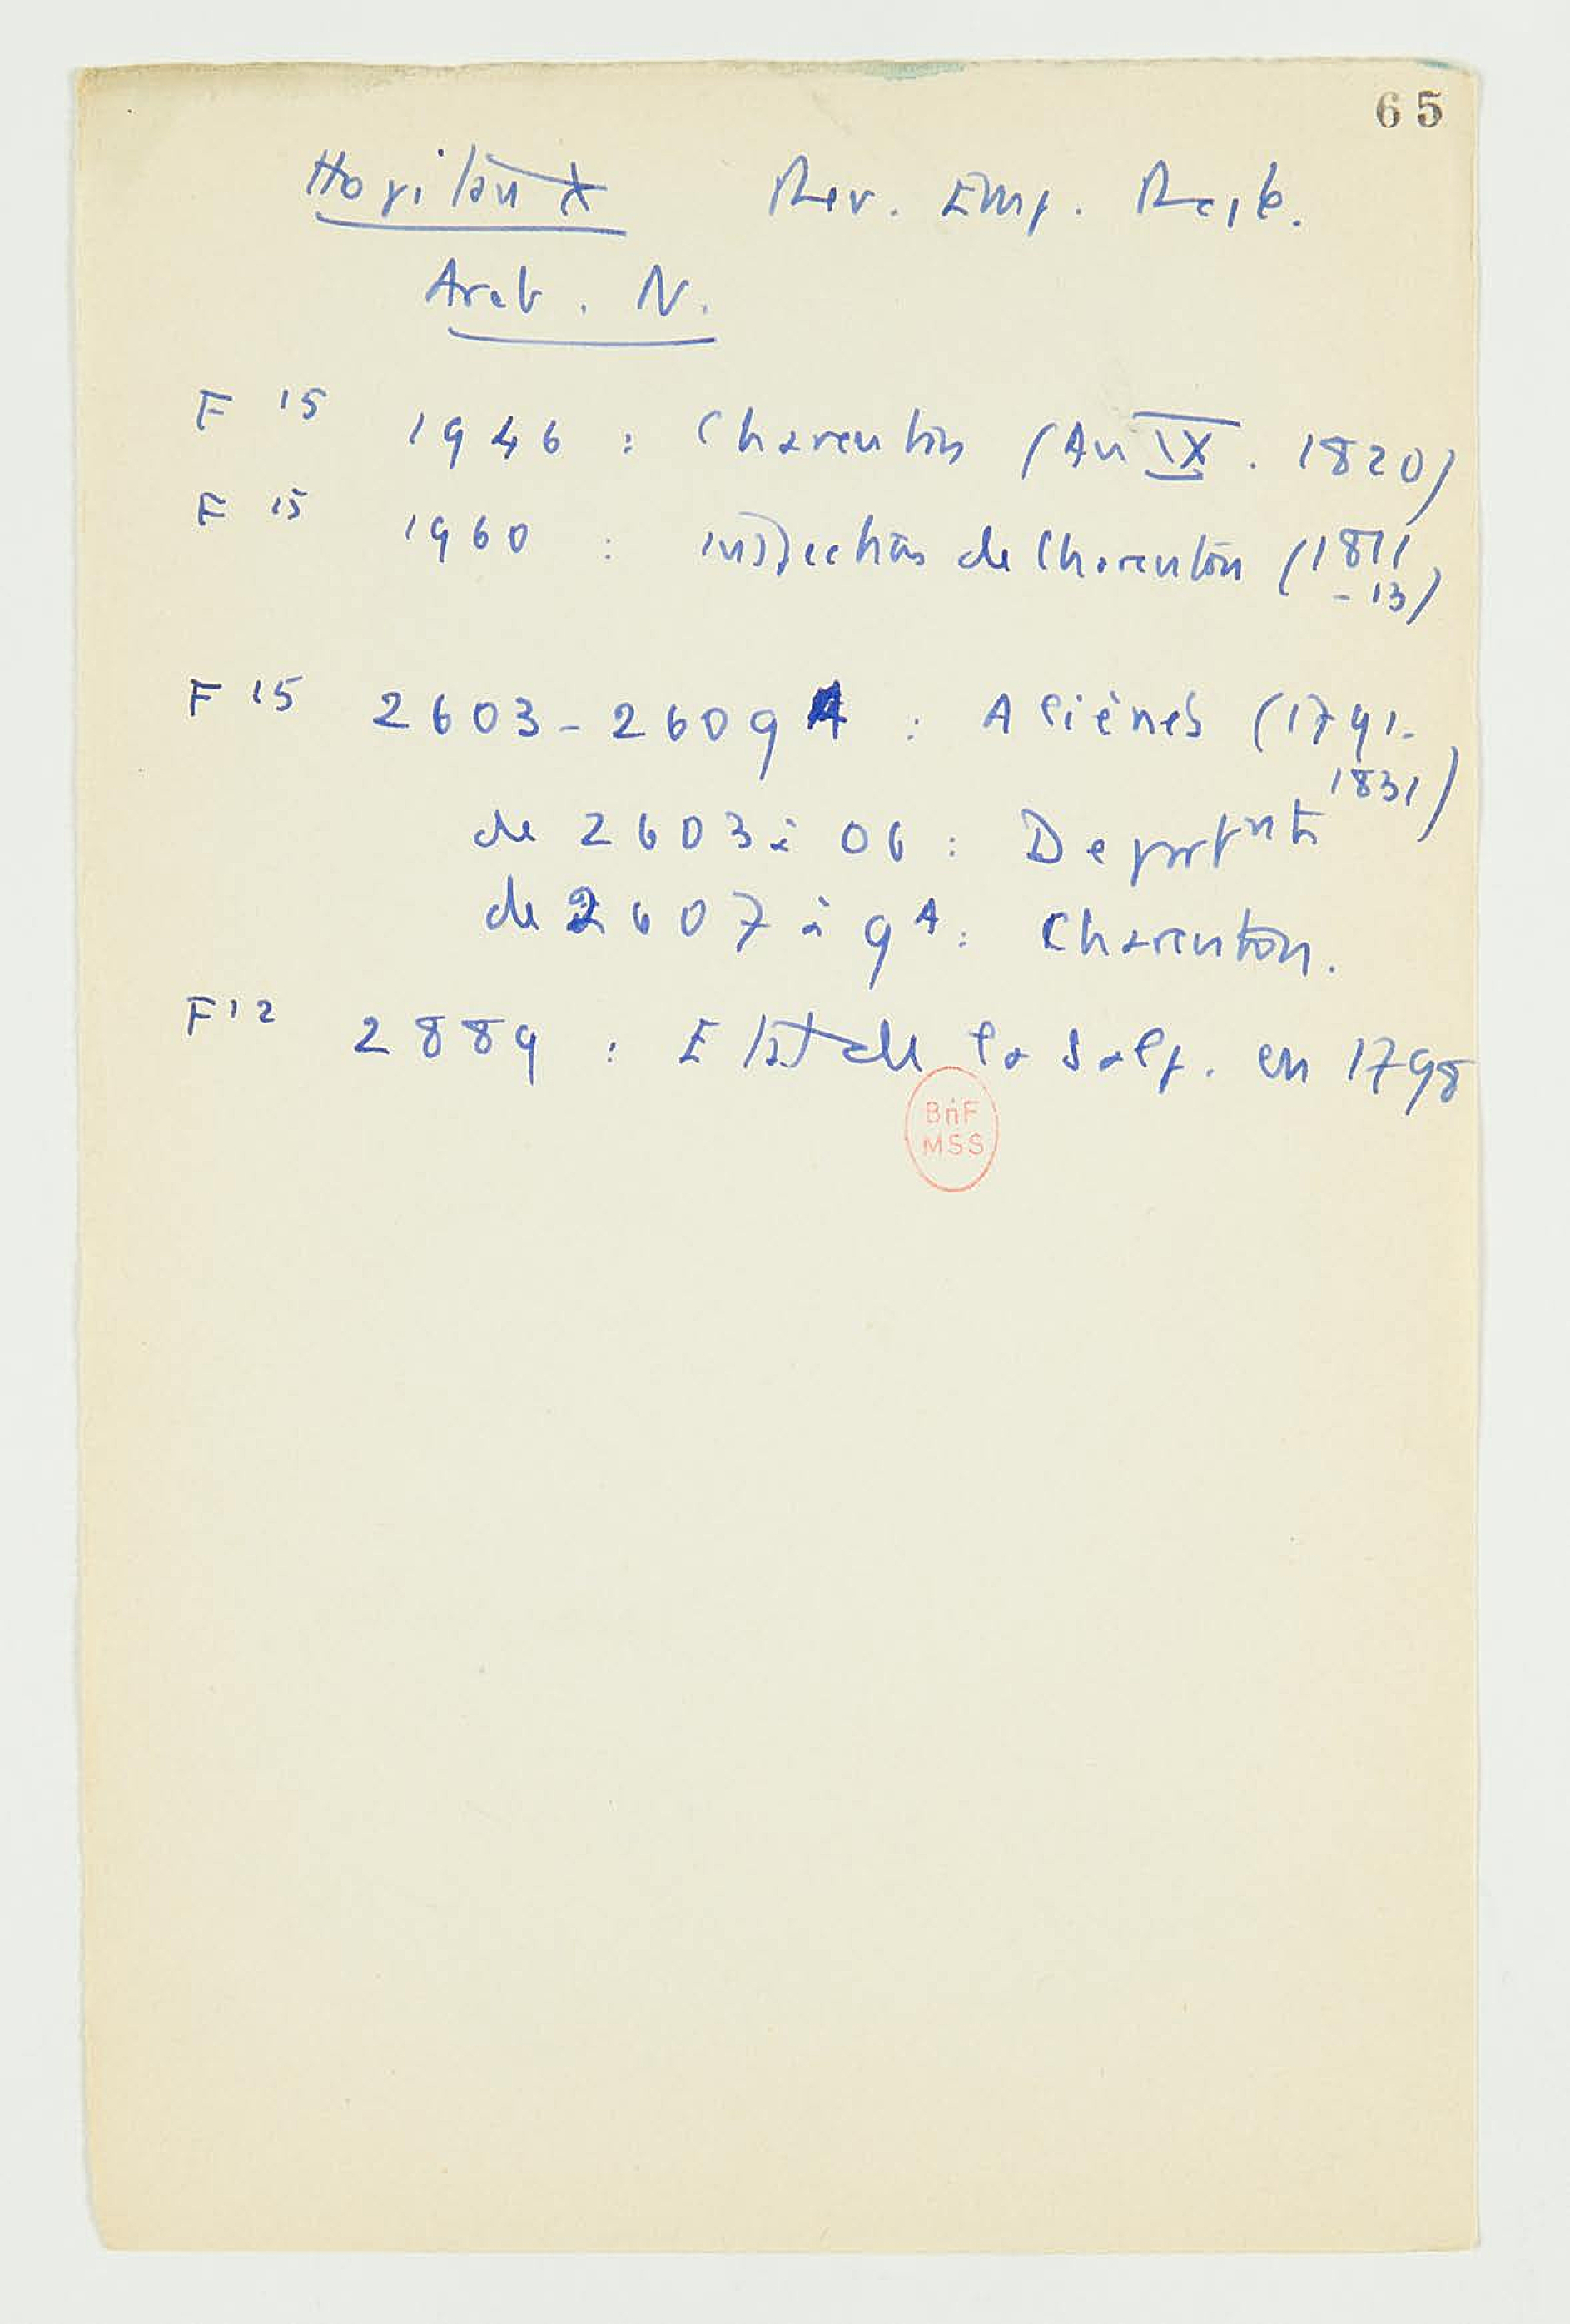 65
Hopitaux Rev. Emp. Rest.
Arch. N.
F 15 1946 : Charenton (An IX. 1820)
F 15 1960 : inspection de Charenton (1811
-13)
F 15 2603-2609 A : Aliénés (1791-
1831)
de 2603 à 06 : Departnts
de 2607 à 9 A : Charenton.
F12 2889 : Etat de la Salp. en 1798
BnF
MSS